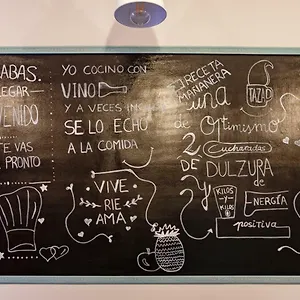 ABAS.
EGAR
VENIDO
TE VAS
PRONTO
YO COCINO CON
VINO
Y A VECES INC
SE LO ECHO
A LA COMIDA
VIVE
RIE
AMA
RECETA
MAÑANERA
una
TAZAD
de Optimismo
2 Cucharadas
de DULZURA
y KILOS
Y
KILOS
de
ENERGÍA
positiva